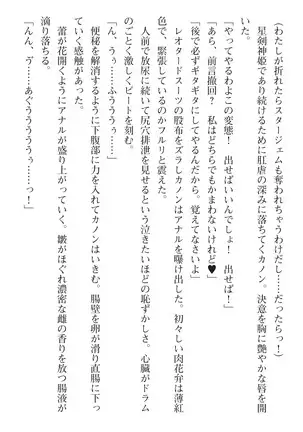 (わたしが折れたらスタージェムも奪われちゃうわけだし…だったらっ！)
星剣神姫であり続けるために肛虐の深みに落ちてくカノン。決意を胸に艶やかな唇を開
いた。
「やってやるわよこの変態！　出せばいいんでしょ！　出せば！」
「あら、前言撤回？　私はどちらでもかまわないけれど♥」
「後で必ずギタギタにしてやるんだから。覚えてなさいよ」
レオタードスーツの股布をズラしカノンはアナルを曝け出した。初々しい肉花弁は薄紅
色で、二個目の排出なのにもかかわらずフルリと震えた。
人前で放尿に続いて尻穴排泄を見せるという泣きたいほどの恥ずかしさ。心臓がドラム
のごとく激しくビートを刻む。
「ん、うぅ…ふうううぅ…っ」
便秘を解消するように下腹部に力を入れてカノンはいきむ。腸壁を卵が滑り直腸に下っ
ていく感触があった。
蕾が花開くようにアナルが盛り上がっていく。皺がほぐれ濃密な雌の香りを放つ腸液が
滴り落ちる。
「んん、う…あぐうううううぅ……っ！」